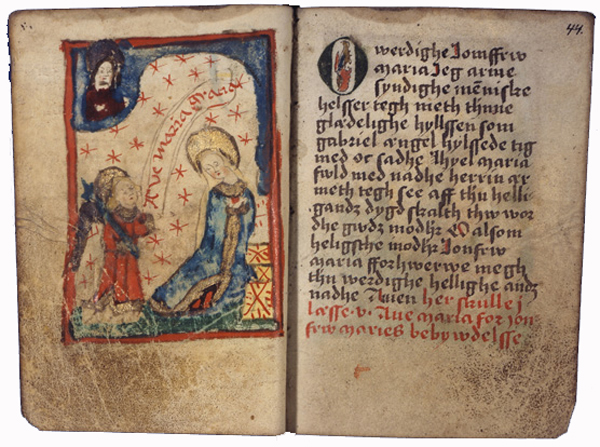 Aue maria gracia
44
O werdighe Jomffrw
maria Jeg arme
syndighe mēniske
helsser tegh meth thinne
glædelighe hylssen som
gabriel ængel hylssede tig
med oc sadhe Ihyel maria
fwld med nadhe herrin ær
meth tegh see aff thn helli
gandz dygd skalth thw wor
dhe gwdz modhr O alsom
heligsthe modhr Jomfrw
maria fforhwerwe megh
thn werdighe hellighe andz
nadhe Amen her skulle i
læsse .v. Aue maria for jom
frw maries bebywdelsse